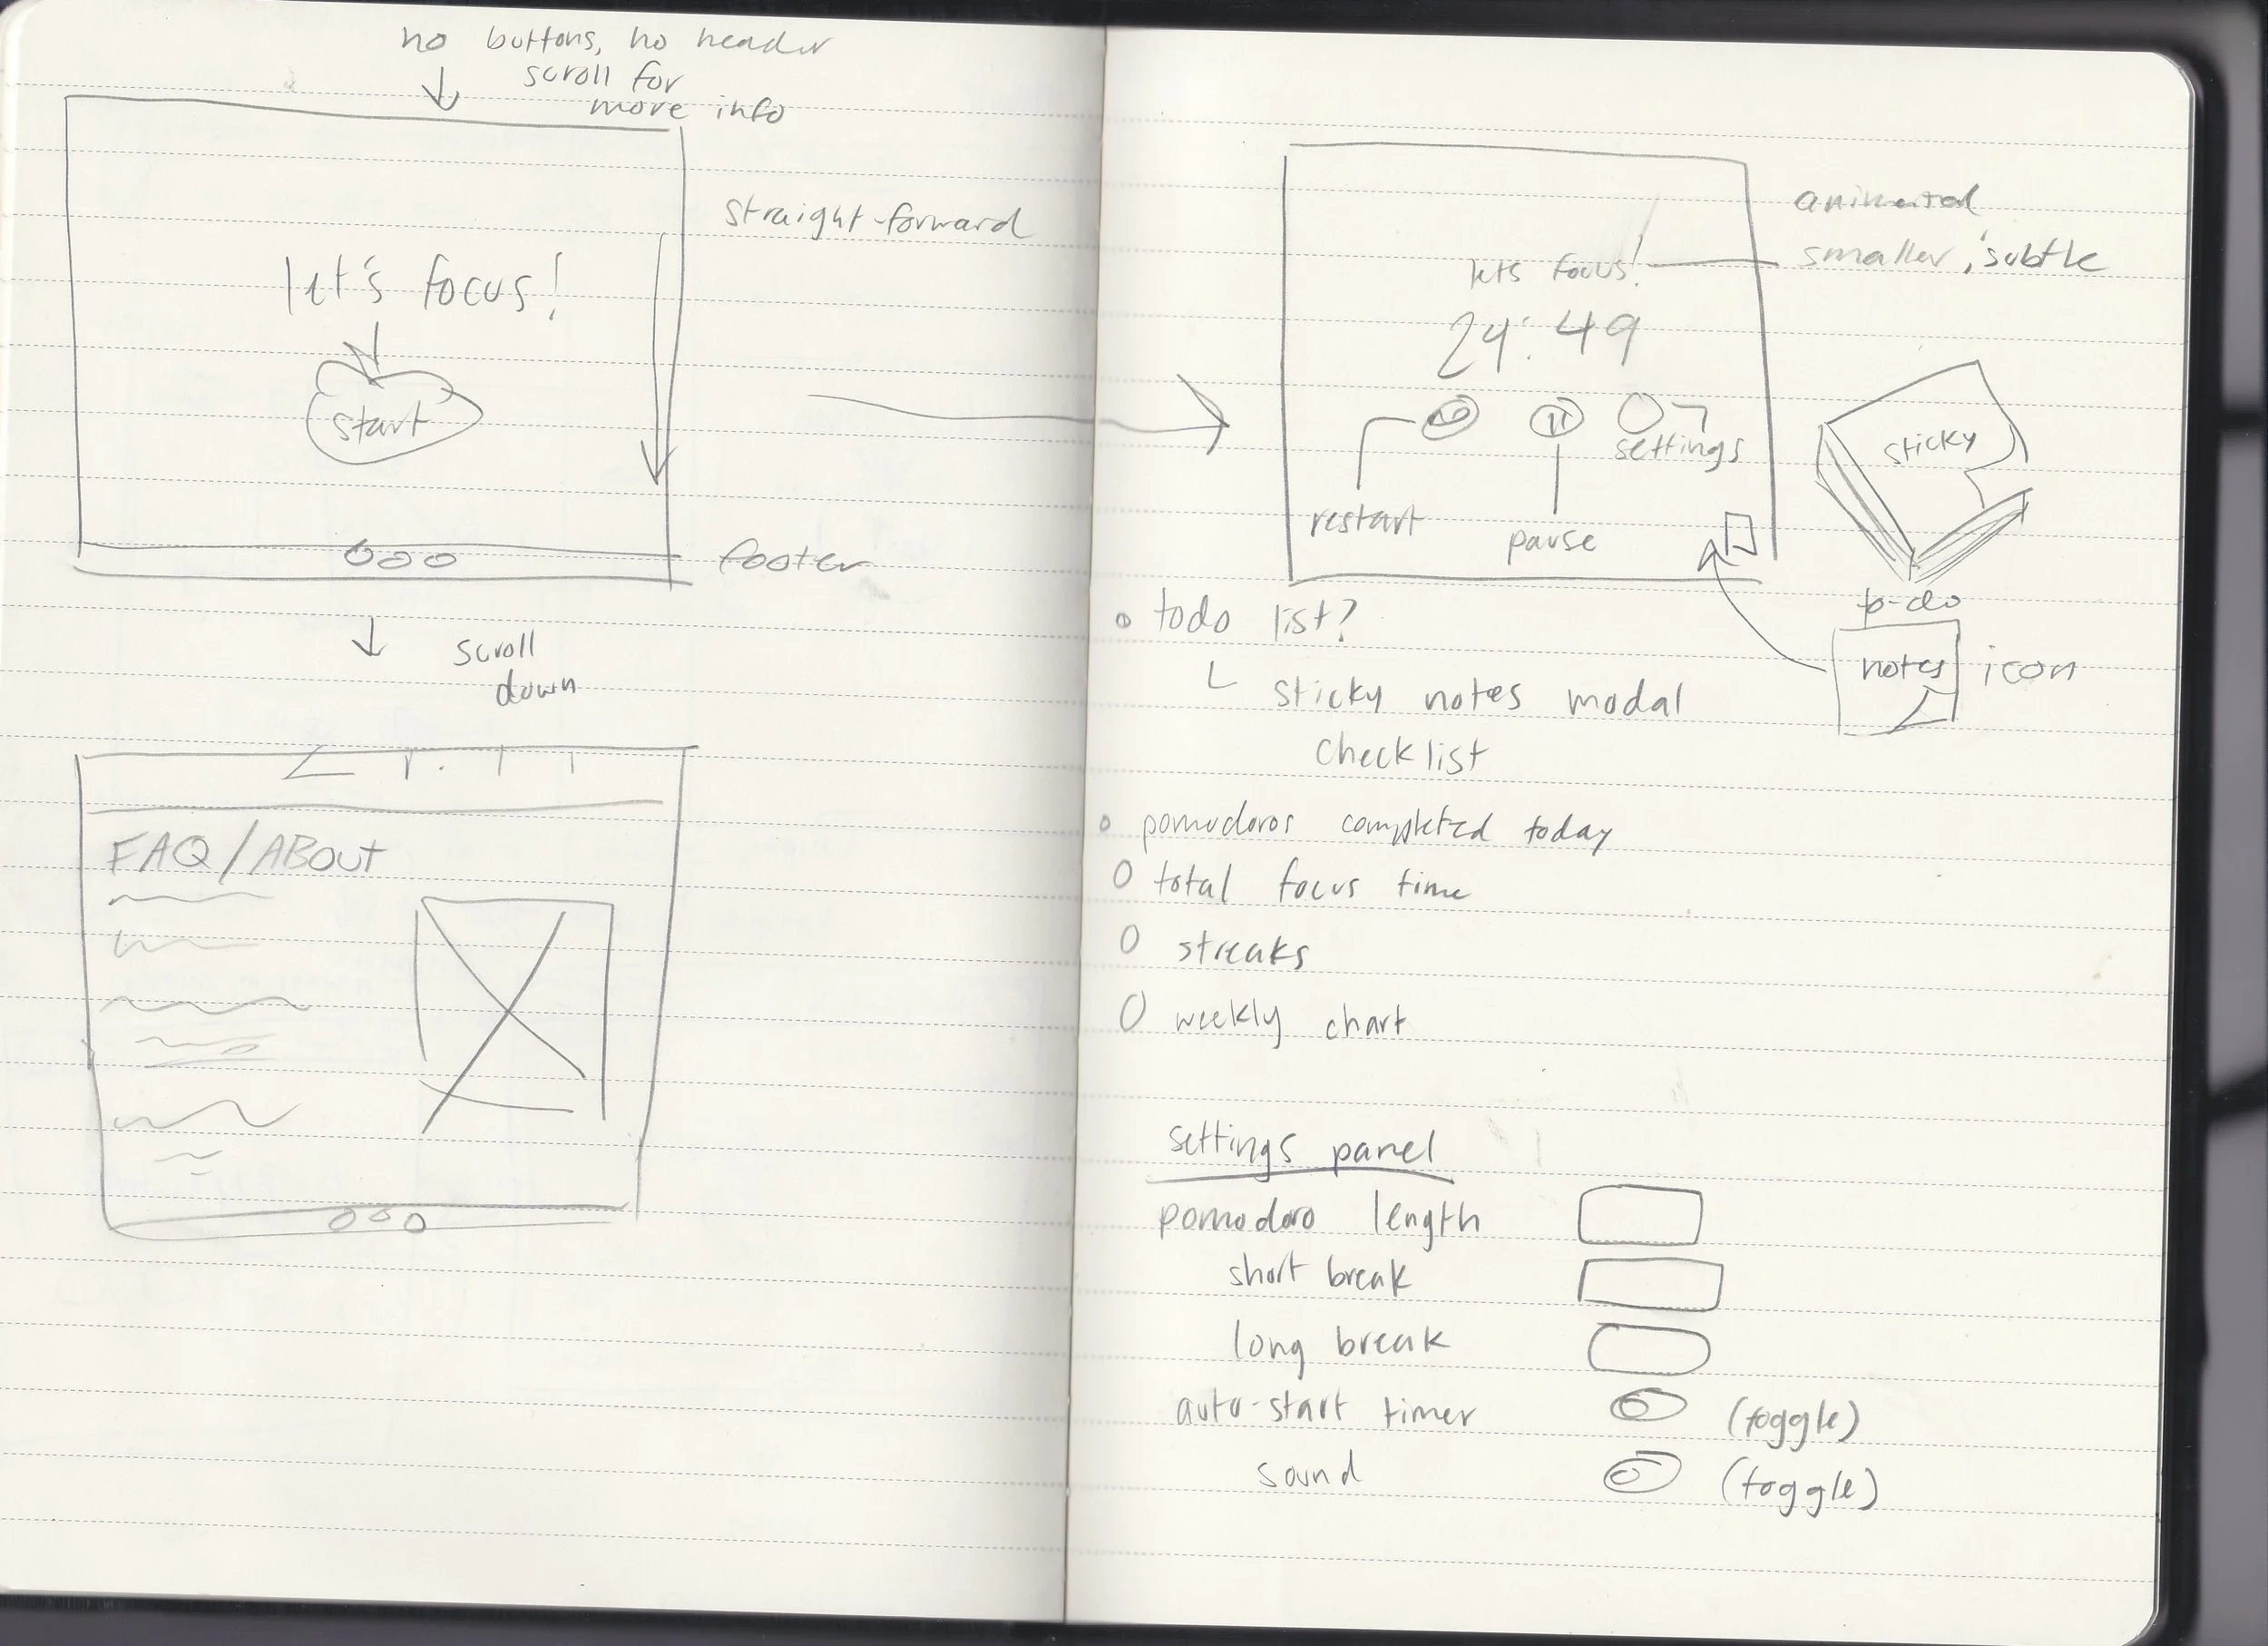 no buttons, no header
scroll for
more info
straight-forward
let's focus!
start
footer
scroll
down
FAQ/ABOUT
animated
smaller, subtle
lets focus!
24:49
settings
restart
pause
sticky
to-do
notes
icon
todo list?
sticky notes modal
checklist
pomodoros completed today
total focus time
streaks
weekly chart
settings panel
pomodoro length
short break
long break
auto-start timer (toggle)
sound (toggle)